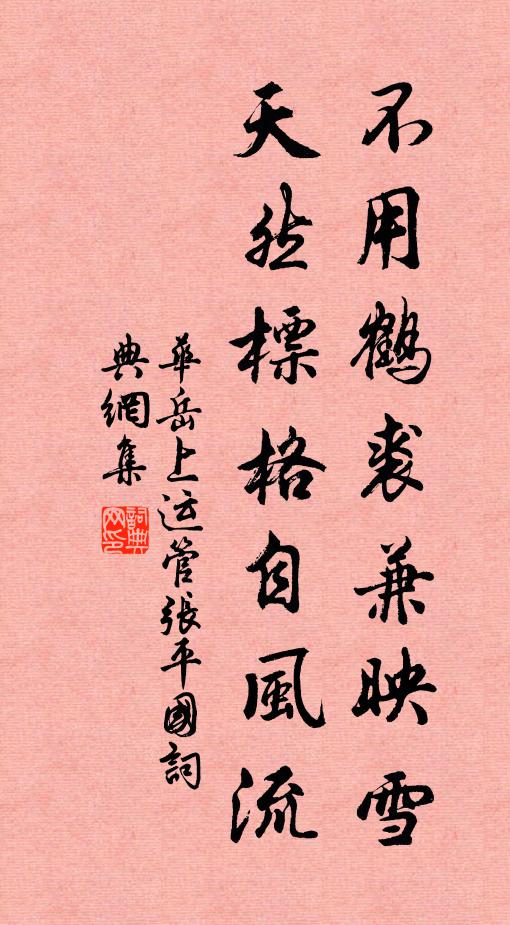 不用鶴裘兼映雪
天然標格自風流
華岳上运管張平國詞
典網集
詞典
网印